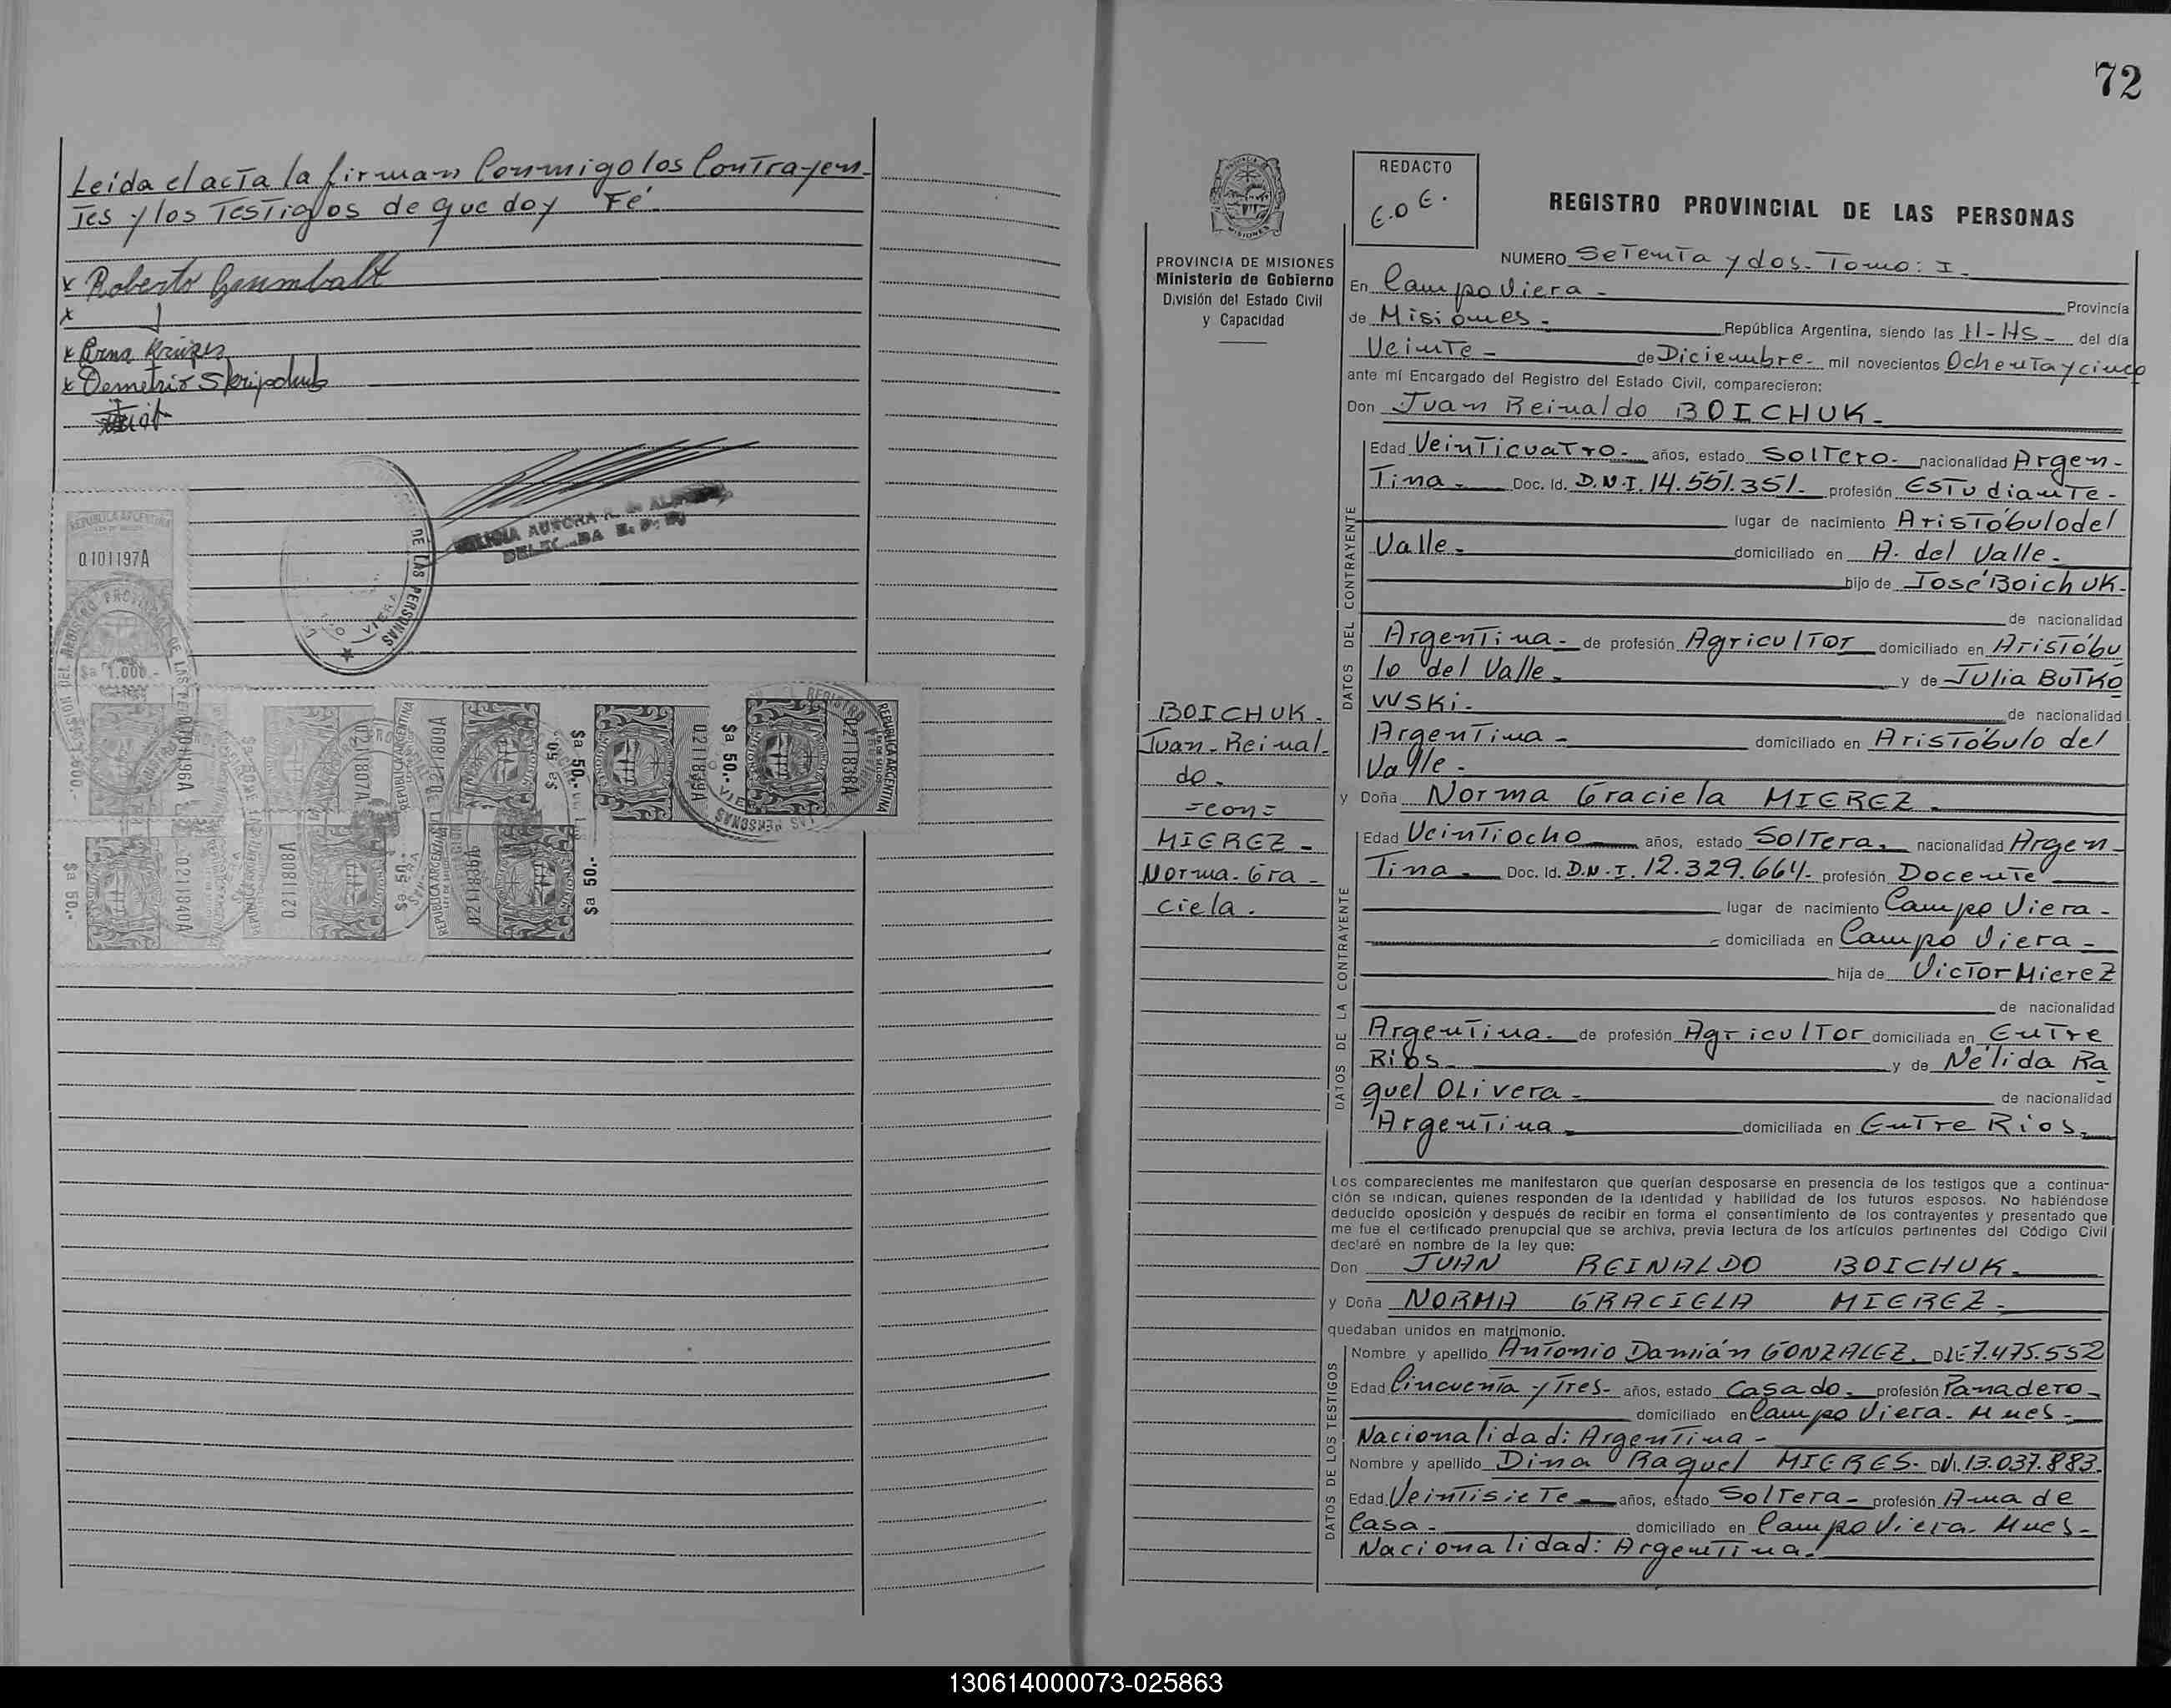 Leída el acta la firman Conmigo los Contrayen-
tes y los Testigos de que doy Fé.
x Roberto Grumbalt
x
x Erna Krüger
x Demetrio Skripchub
DE LAS PERSONAS
VIERA
AURORA
REPUBLICA ARGENTINA
0101197A
$a 1.000.-
0101196A
0211807A
REPUBLICA ARGENTINA
0211809A
$a 50.-
$a 50.-
0211839A
$a 50.-
0211838A
REPUBLICA ARGENTINA
$a 50.-
0211840A
0211808A
$a 50.-
REPUBLICA ARGENTINA
0211836A
$a 50.-
72
PROVINCIA DE MISIONES
Ministerio de Gobierno
División del Estado Civil
y Capacidad
BOICHUK-
Juan-Reinal-
do-
=con=
MIEREZ-
Norma-Gra-
ciela.
REDACTO
E.O.E.
REGISTRO PROVINCIAL DE LAS PERSONAS
NUMERO Setenta y dos. Tomo: I.
En Campo Viera - Provincia
de Misiones. República Argentina, siendo las 11-HS- del día
Veinte- de Diciembre- mil novecientos Ochenta y cinco
ante mí Encargado del Registro del Estado Civil, comparecieron:
Don Juan Reinaldo BOICHUK.
DATOS DEL CONTRAYENTE
Edad Veinticuatro- años, estado Soltero- nacionalidad Argen-
tina- Doc. Id. D.N.I. 14.551.351- profesión Estudiante-
lugar de nacimiento Aristóbulo del
Valle- domiciliado en A. del Valle-
hijo de José Boichuk-
de nacionalidad
Argentina- de profesión Agricultor domiciliado en Aristóbu
lo del Valle- y de Julia Butko
wski- de nacionalidad
Argentina- domiciliado en Aristóbulo del
Valle-
y Doña Norma Graciela MIEREZ-
DATOS DE LA CONTRAYENTE
Edad Veintiocho años, estado Soltera. nacionalidad Argen-
tina- Doc. Id. D.N.I. 12.329.664- profesión Docente
lugar de nacimiento Campo Viera-
domiciliada en Campo Viera-
hija de Victor Mierez
de nacionalidad
Argentina- de profesión Agricultor domiciliada en Entre
Rios- y de Nélida Ra
quel Olivera- de nacionalidad
Argentina- domiciliada en Entre Rios-
Los comparecientes me manifestaron que querían desposarse en presencia de los testigos que a continua-
ción se indican, quienes responden de la identidad y habilidad de los futuros esposos. No habiéndose
deducido oposición y después de recibir en forma el consentimiento de los contrayentes y presentado que
me fue el certificado prenupcial que se archiva, previa lectura de los artículos pertinentes del Código Civil
declaré en nombre de la ley que:
Don JUAN REINALDO BOICHUK-
y Doña NORMA GRACIELA MIEREZ-
quedaban unidos en matrimonio.
DATOS DE LOS TESTIGOS
Nombre y apellido Antonio Damián GONZALEZ. DIE 7.475.552
Edad Cincuenta y Tres- años, estado Casado- profesión Panadero-
domiciliado en Campo Viera- Mnes-
Nacionalidad: Argentina-
Nombre y apellido Dina Raquel MIERES- DNI. 13.037.883.
Edad Veintisiete- años, estado Soltera- profesión Ama de
Casa- domiciliado en Campo Viera- Mnes-
Nacionalidad: Argentina.
130614000073-025863